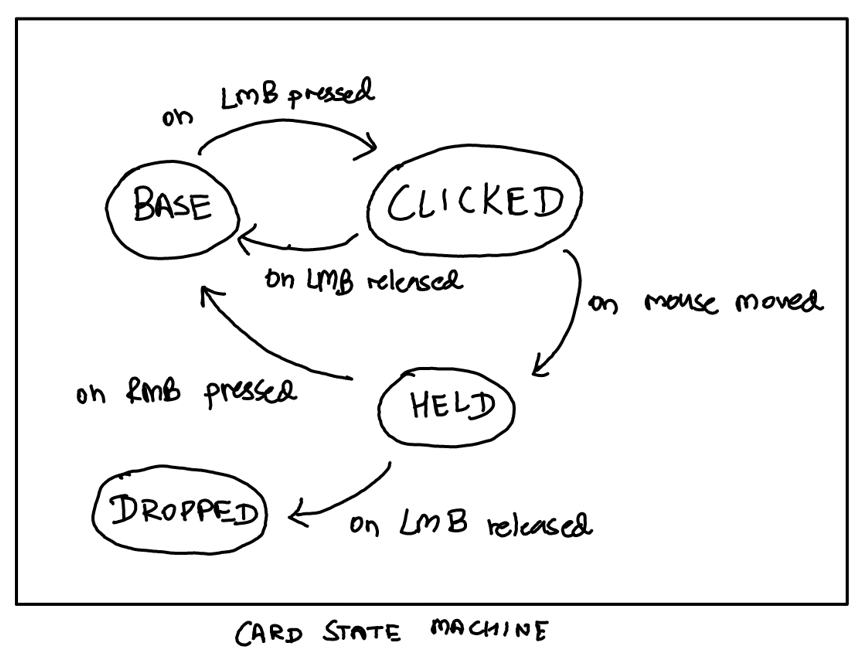 on LMB pressed
BASE
CLICKED
on LMB released
on mouse moved
on RMB pressed
HELD
DROPPED
on LMB released
CARD STATE MACHINE